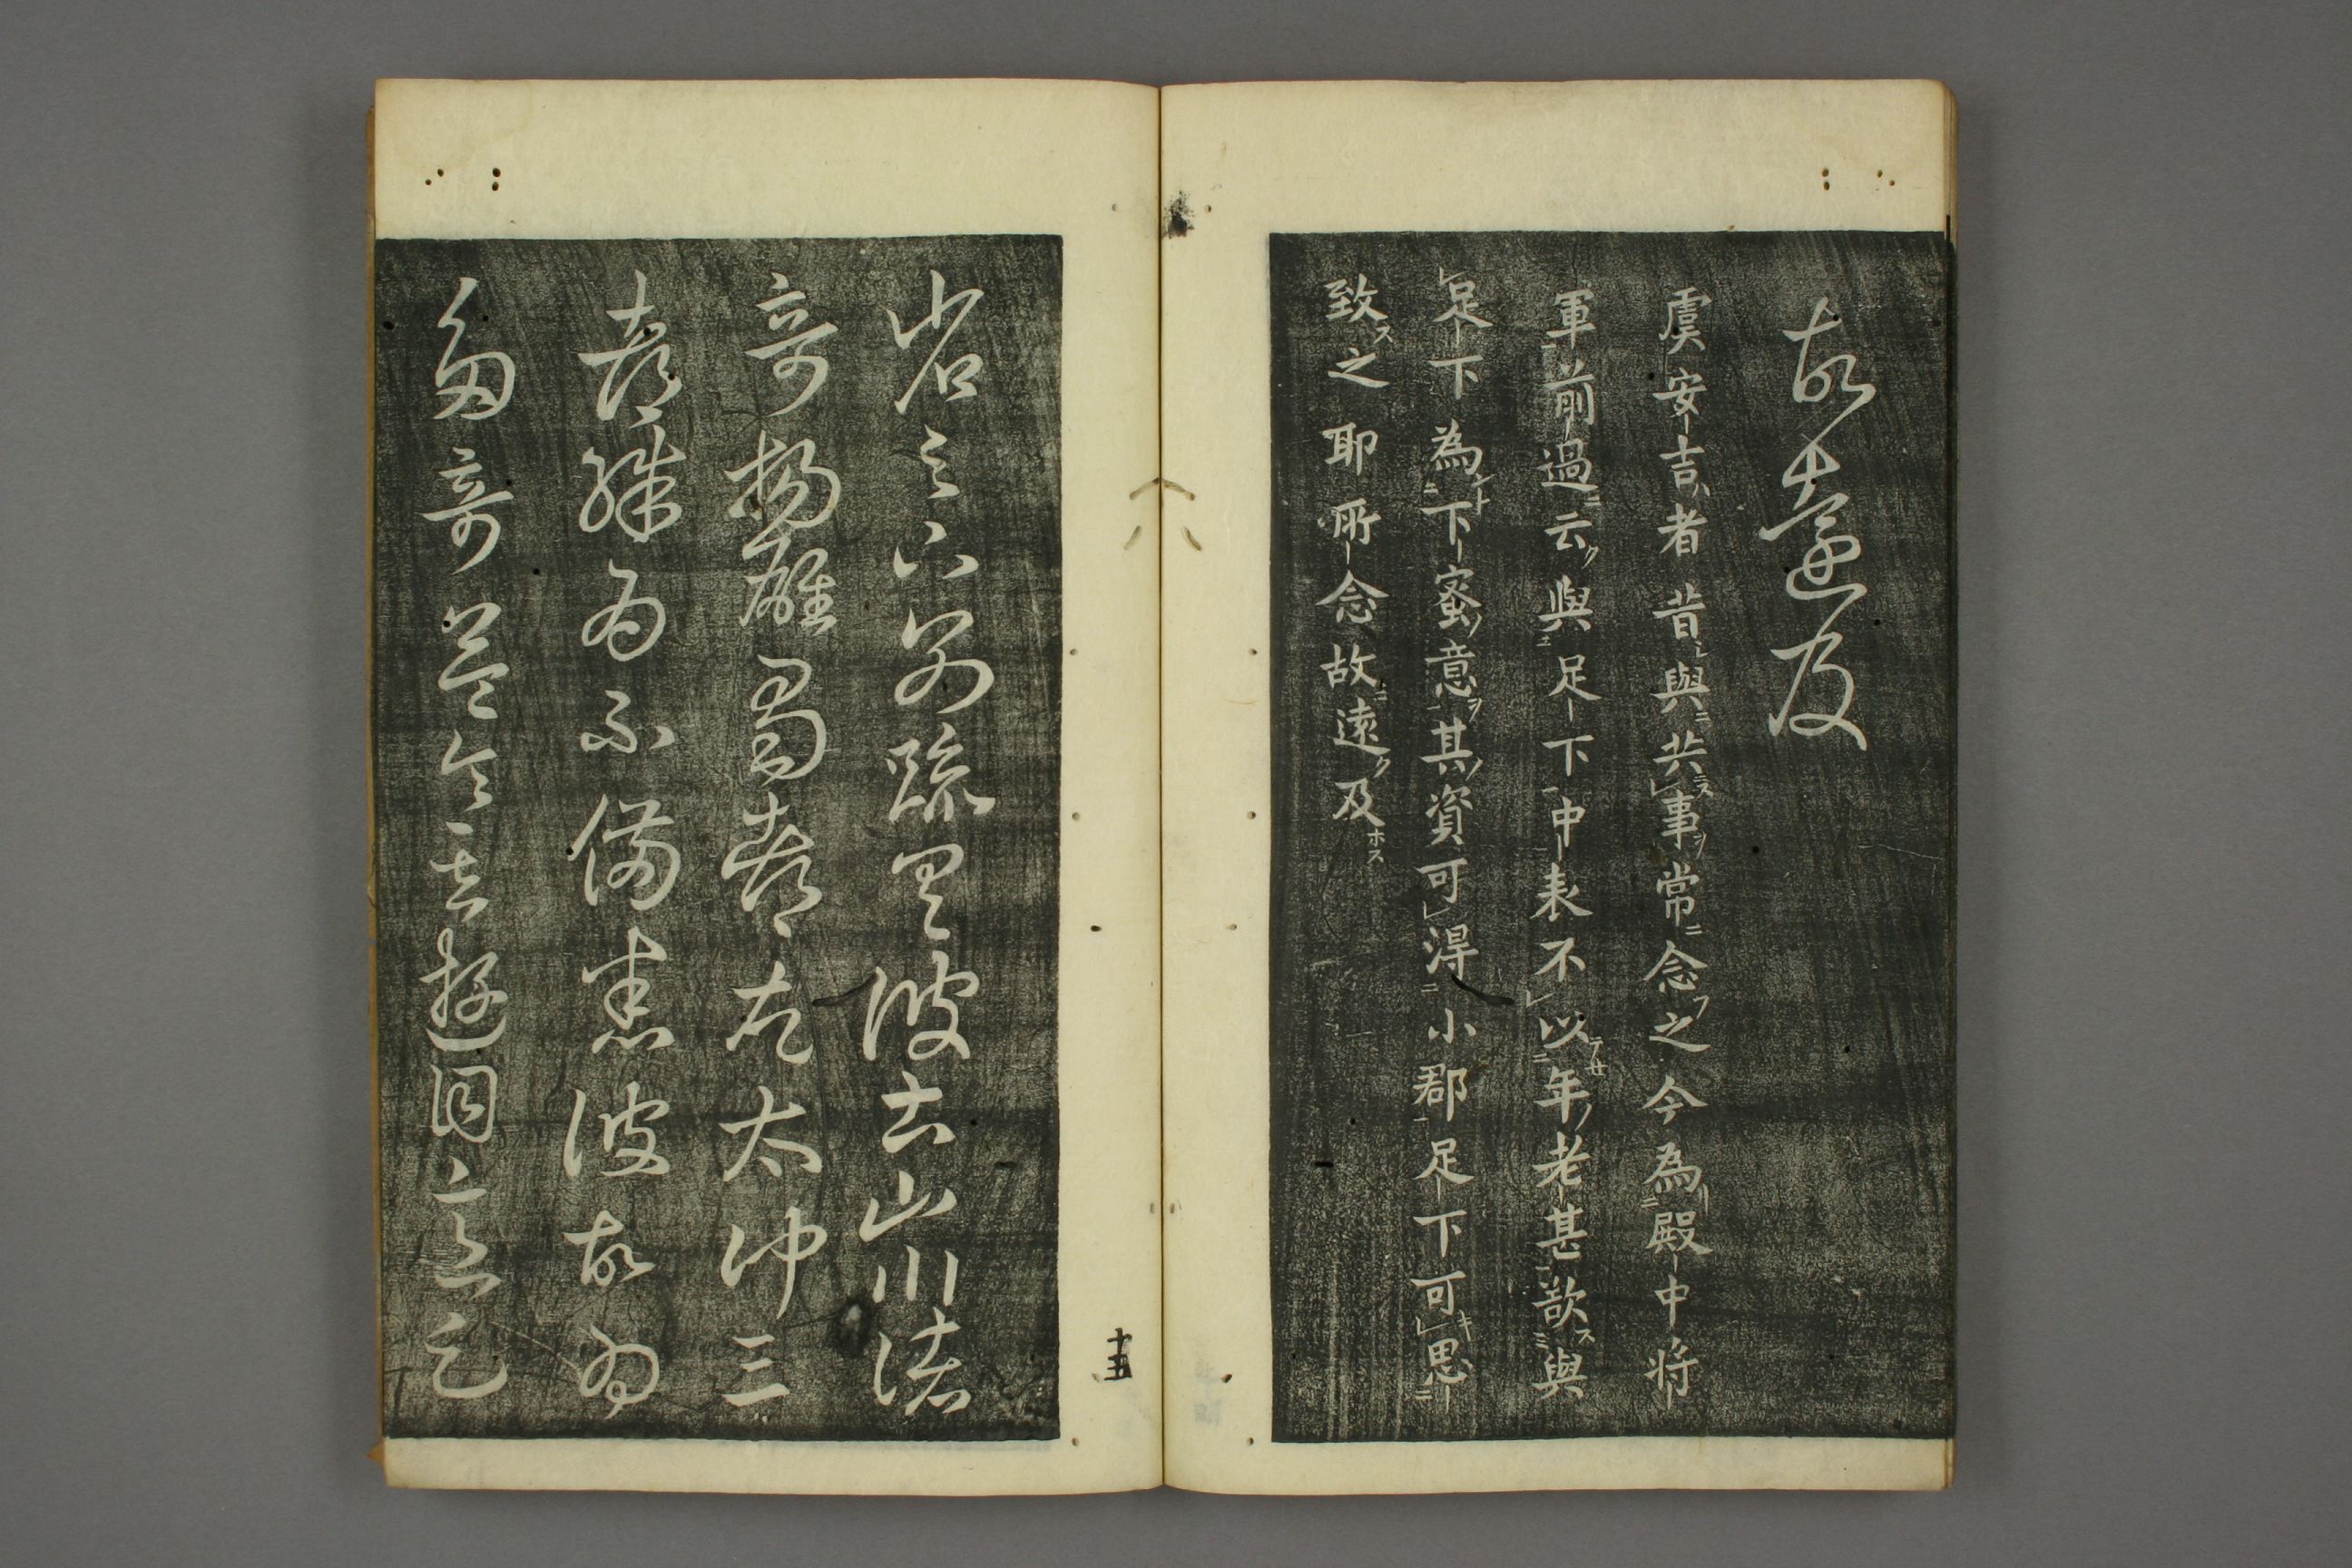 故遠及
虞安吉者昔與共事常念之今為殿中将
軍前過云與足下中表不以年老甚欲與
足下為下寮意其資可得小郡足下可思
致之耶所念故遠及
省足下別疏具彼土山川諸
奇揚雄蜀都左太沖三
都殊為不備悉彼故為
多奇益令其遊目意足
十五